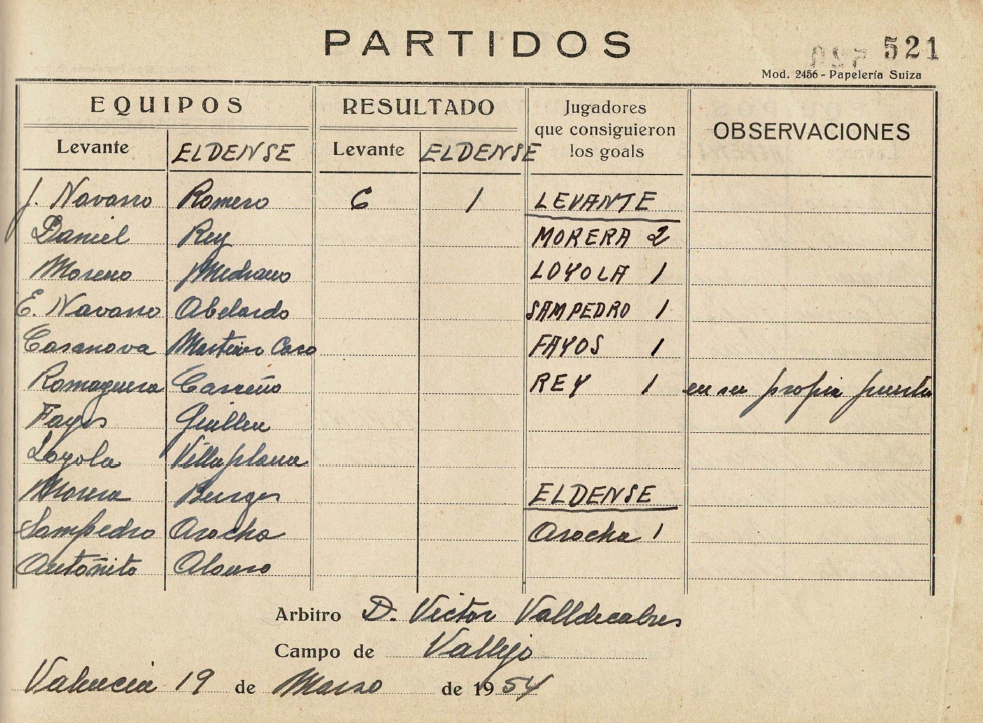 PARTIDOS
521
Mod. 2456 - Papelería Suiza
EQUIPOS RESULTADO Jugadores que consiguieron los goals OBSERVACIONES
Levante ELDENSE Levante ELDENSE
J. Navarro Romero 6 1 LEVANTE
Daniel Rey MORERA 2
Moreno Medrano LOYOLA 1
E. Navarro Abelardo SAMPEDRO 1
Casanova Marteiro Caro FAYOS 1
Romaguera Carreño REY 1 en su propia puerta
Fayos Guillen
Loyola Villaplana
Morera Burges ELDENSE
Sampedro Arocha Arocha 1
Antoñito Alonso
Arbitro D. Victor Valldecabres
Campo de Vallejo
Valencia 19 de Marzo de 1954